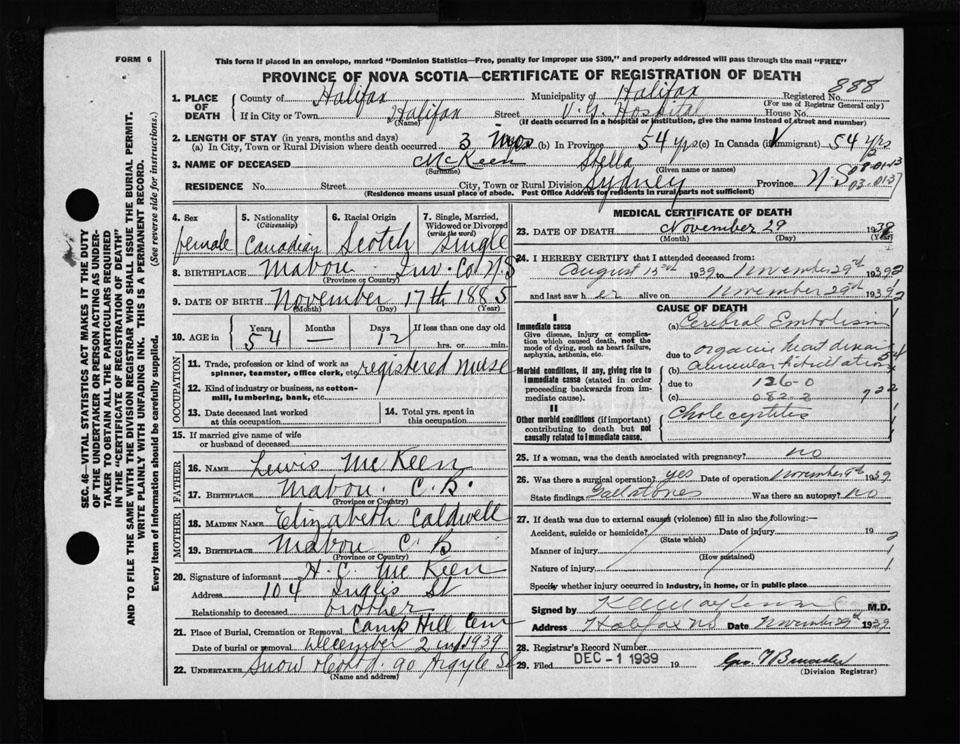 FORM 6
This form if placed in an envelope, marked "Dominion Statistics—Free, penalty for improper use $300," and properly addressed will pass through the mail "FREE"
PROVINCE OF NOVA SCOTIA—CERTIFICATE OF REGISTRATION OF DEATH
888
1. PLACE OF DEATH County of Halifax Municipality of Halifax Registered No.
(For use of Registrar General only)
If in City or Town Halifax Street V.G. Hospital House No.
(Name) (If death occurred in a hospital or institution, give the name instead of street and number)
2. LENGTH OF STAY (in years, months and days)
(a) In City, Town or Rural Division where death occurred 3 mos (b) In Province 54 yrs (c) In Canada (if immigrant) 54 yrs
3. NAME OF DECEASED McKeen Stella
(Surname) (Given name or names)
RESIDENCE No. Street City, Town or Rural Division Sydney Province N.S.
03-01-37
(Residence means usual place of abode. Post Office Address for residents in rural parts not sufficient)
4. Sex 5. Nationality (Citizenship) 6. Racial Origin 7. Single, Married, Widowed or Divorced (write the word)
female Canadian Scotch Single
8. BIRTHPLACE Mabou Inv. Co. N.S
(Province or Country)
9. DATE OF BIRTH November 17th 1885
(Month) (Day) (Year)
10. AGE in Years 54 Months — Days 12 If less than one day old hrs. or min.
OCCUPATION
11. Trade, profession or kind of work as spinner, teamster, office clerk, etc. registered nurse
12. Kind of industry or business, as cotton-mill, lumbering, bank, etc.
13. Date deceased last worked at this occupation
14. Total yrs. spent in this occupation
15. If married give name of wife or husband of deceased
FATHER
16. NAME Lewis McKeen
17. BIRTHPLACE Mabou C.B.
(Province or Country)
MOTHER
18. MAIDEN NAME Elizabeth Caldwell
19. BIRTHPLACE Mabou C.B
(Province or Country)
20. Signature of informant H. C. McKeen
Address 104 Inglis St
Relationship to deceased brother
21. Place of Burial, Cremation or Removal Camp Hill Cem
Date of burial or removal December 2 1939
22. UNDERTAKER Snow 90 Argyle St
(Name and address)
MEDICAL CERTIFICATE OF DEATH
23. DATE OF DEATH November 29 1939
(Month) (Day) (Year)
24. I HEREBY CERTIFY that I attended deceased from:
August 15 1939 to November 29th 1939
and last saw her alive on November 29th 1939
CAUSE OF DEATH
I
Immediate cause
Give disease, injury or complication which caused death, not the mode of dying, such as heart failure, asphyxia, asthenia, etc.
(a) Cerebral Embolism
due to organic heart disease
auricular fibrillation
Morbid conditions, if any, giving rise to immediate cause (stated in order proceeding backwards from immediate cause).
due to 126-0
(c) 082-2
II
Other morbid conditions (if important) contributing to death but not causally related to immediate cause.
25. If a woman, was the death associated with pregnancy? no
26. Was there a surgical operation? yes Date of operation November 9th 1939
State findings Gallstones Was there an autopsy? no
27. If death was due to external causes (violence) fill in also the following:—
Accident, suicide or homicide? Date of injury 19
(State which)
Manner of injury
(How sustained)
Nature of injury
Specify whether injury occurred in industry, in home, or in public place
Signed by M.D.
Address Halifax NS Date November 29th 1939
28. Registrar's Record Number
29. Filed DEC -1 1939 19
(Division Registrar)
SEC. 46—VITAL STATISTICS ACT MAKES IT THE DUTY
OF THE UNDERTAKER OR PERSON ACTING AS UNDER-
TAKER TO OBTAIN ALL THE PARTICULARS REQUIRED
IN THE "CERTIFICATE OF REGISTRATION OF DEATH"
AND TO FILE THE SAME WITH THE DIVISION REGISTRAR WHO SHALL ISSUE THE BURIAL PERMIT.
WRITE PLAINLY WITH UNFADING INK. THIS IS A PERMANENT RECORD.
Every item of Information should be carefully supplied. (See reverse side for instructions.)